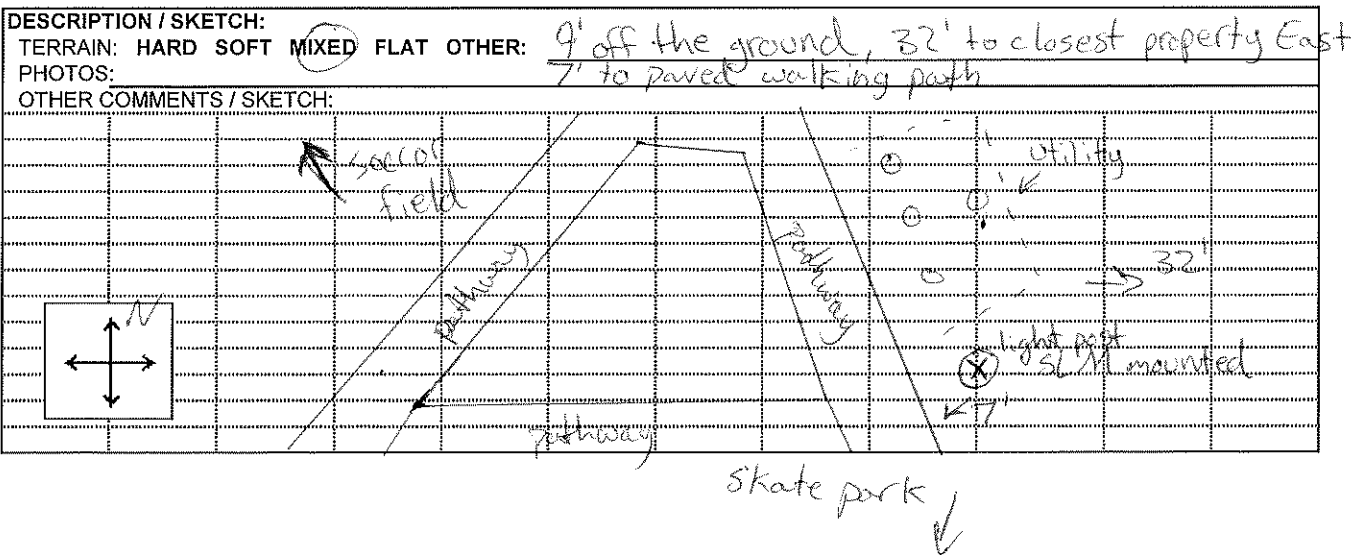 DESCRIPTION / SKETCH:
TERRAIN: HARD SOFT MIXED FLAT OTHER: 9' off the ground, 32' to closest property East
7' to paved walking path
PHOTOS:
OTHER COMMENTS / SKETCH:
soccor
field
utility
pathway
pathway
32'
N
light post
SLM mounted
7'
pathway
skate park